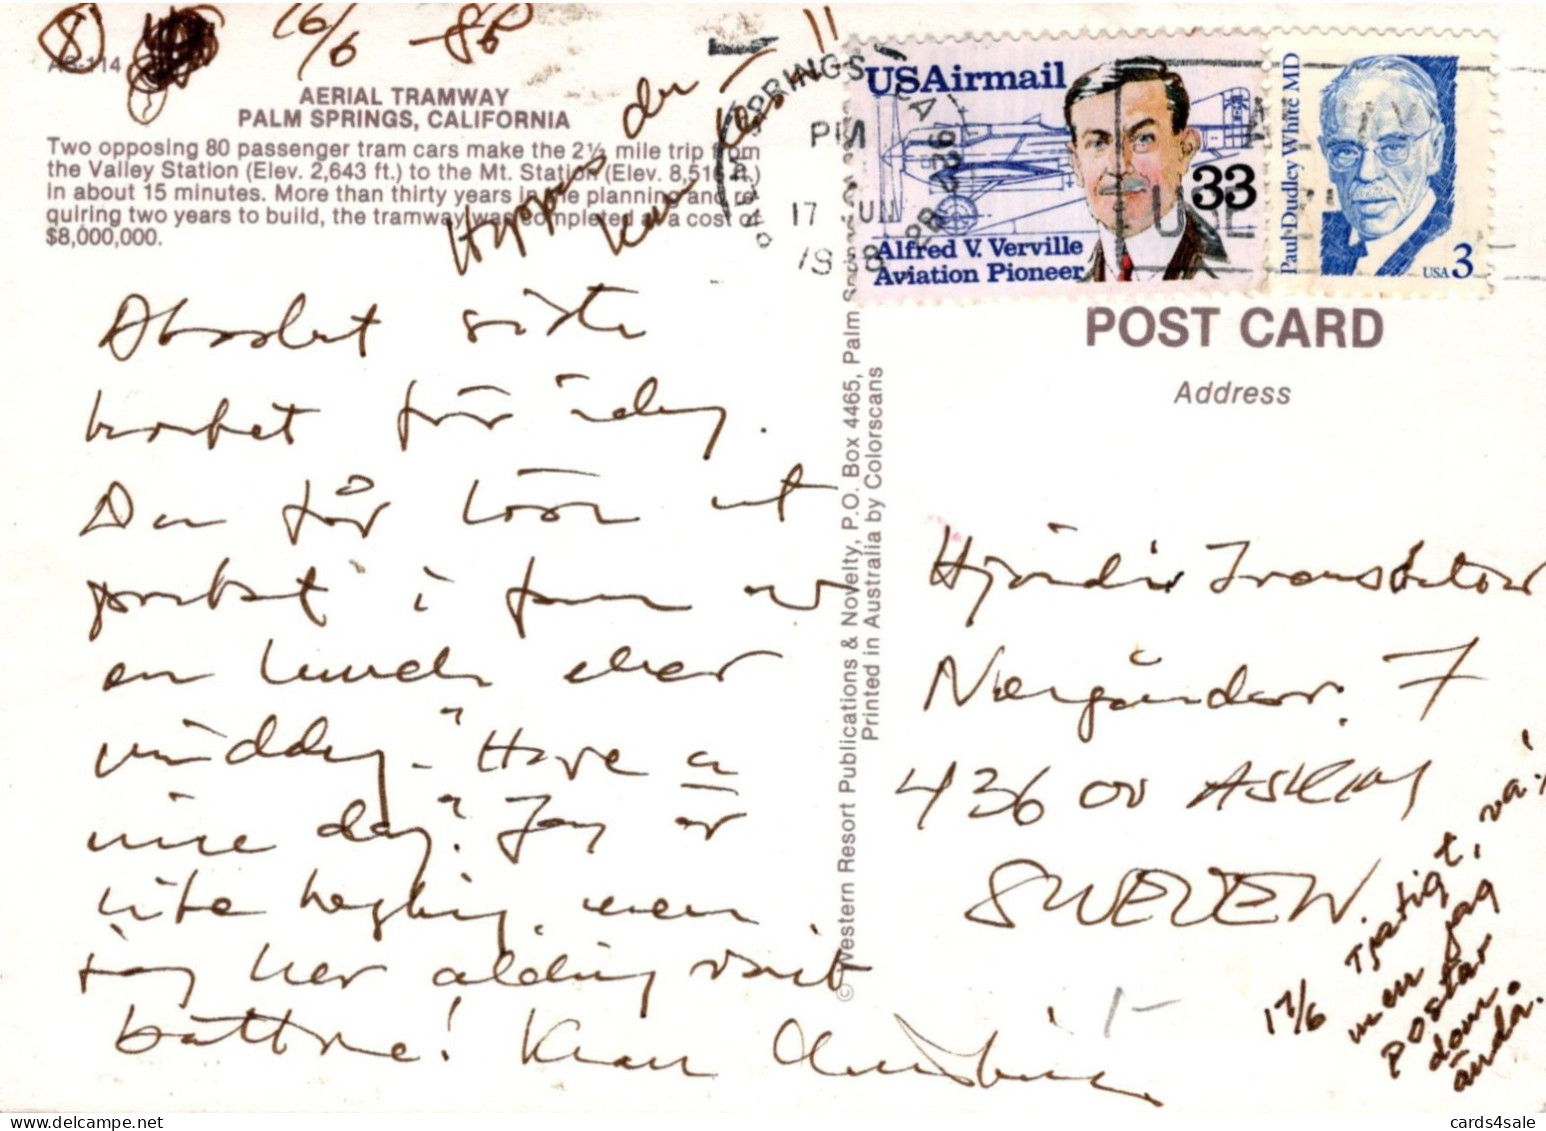 8
16/6 -88
AS-114
AERIAL TRAMWAY
PALM SPRINGS, CALIFORNIA
Two opposing 80 passenger tram cars make the 2½ mile trip from
the Valley Station (Elev. 2,643 ft.) to the Mt. Station (Elev. 8,516 ft.)
in about 15 minutes. More than thirty years in the planning and re-
quiring two years to build, the tramway was completed at a cost of
$8,000,000.
Hoppas du
kan läsa!!
Absolut sista
kortet för idag.
Du får lösa ut
portot i form av
en lunch eller
middag. "Have a
nice day". Jag är
lite haglig, men
jag har aldrig varit
bättre! Kram
SPRINGS CA 922
PM
17 JUN
1988
USAirmail
33
Alfred V. Verville
Aviation Pioneer
Paul Dudley White MD
USA 3
POST CARD
Address
© Western Resort Publications & Novelty, P.O. Box 4465, Palm S
Printed in Australia by Colorscans
7
436 00 ASKIM
SWEDEN.
17/6 Tjatigt, va!
men jag
postar
dom
ändå.
cards4sale